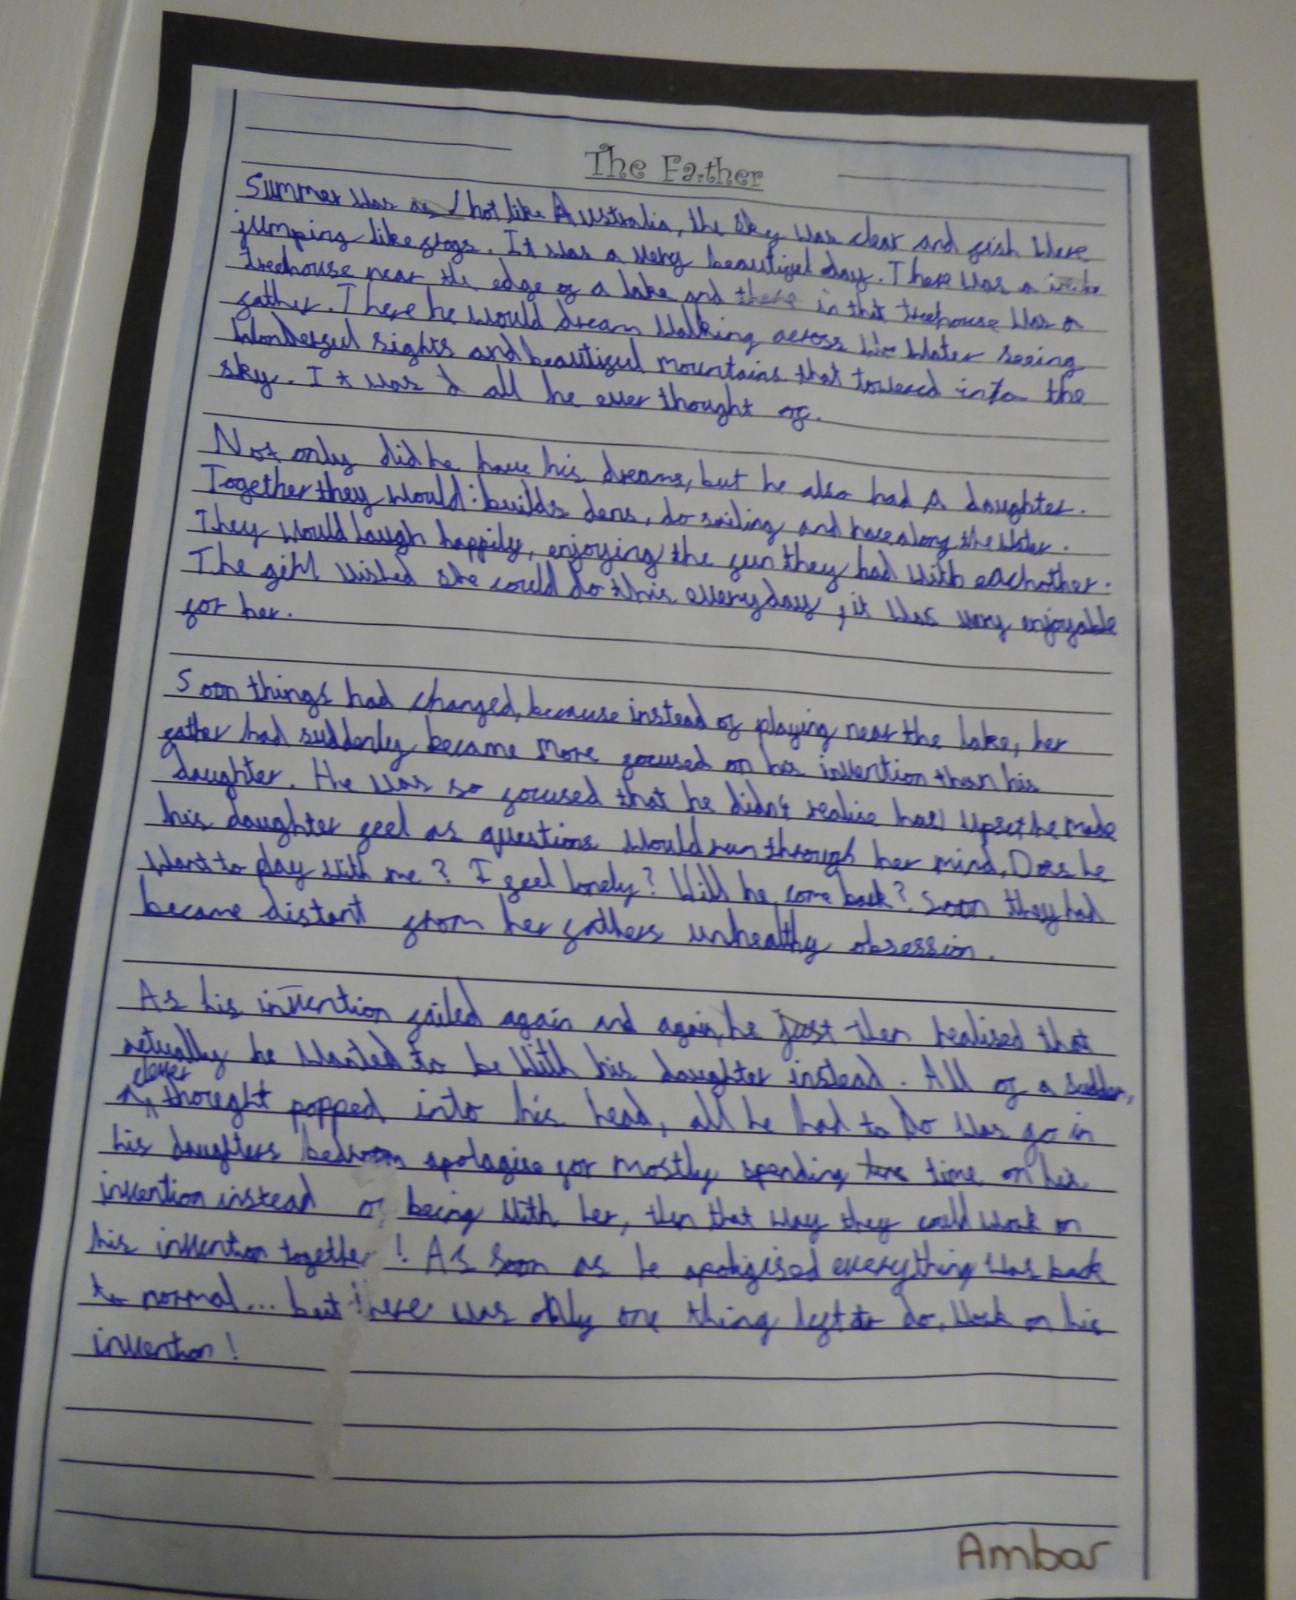 The Father
Summer was as hot like Australia, the sky was clear and fish were
jumping like frogs. It was a very beautiful day. There was a
treehouse near the edge of a lake and there in that treehouse was a
father. There he would dream walking across the water seeing
wonderful sights and beautiful mountains that towered into the
sky. It was all he ever thought of.
Not only did he have his dreams, but he also had a daughter.
Together they would: builds dens, do sailing and race along the water.
They would laugh happily, enjoying the fun they had with eachother.
The girl wished she could do this everyday, it was very enjoyable
for her.
Soon things had changed, because instead of playing near the lake, her
father had suddenly became more focused on his invention than his
daughter. He was so focused that he didn't realise how upset he made
his daughter feel as questions would run through her mind. Does he
want to play with me? I feel lonely? Will he come back? Soon they had
became distant from her fathers unhealthy obsession.
As his invention failed again and again, he just then realised that
actually he wanted to be with his daughter instead. All of a sudden,
clever
A thought popped into his head, all he had to do was go in
his daughters bedroom apologise for mostly spending time on his
invention instead of being with her, then that way they could work on
his invention together! As soon as he apoligised everything was back
to normal... but there was only one thing left to do, work on his
invention!
Ambar